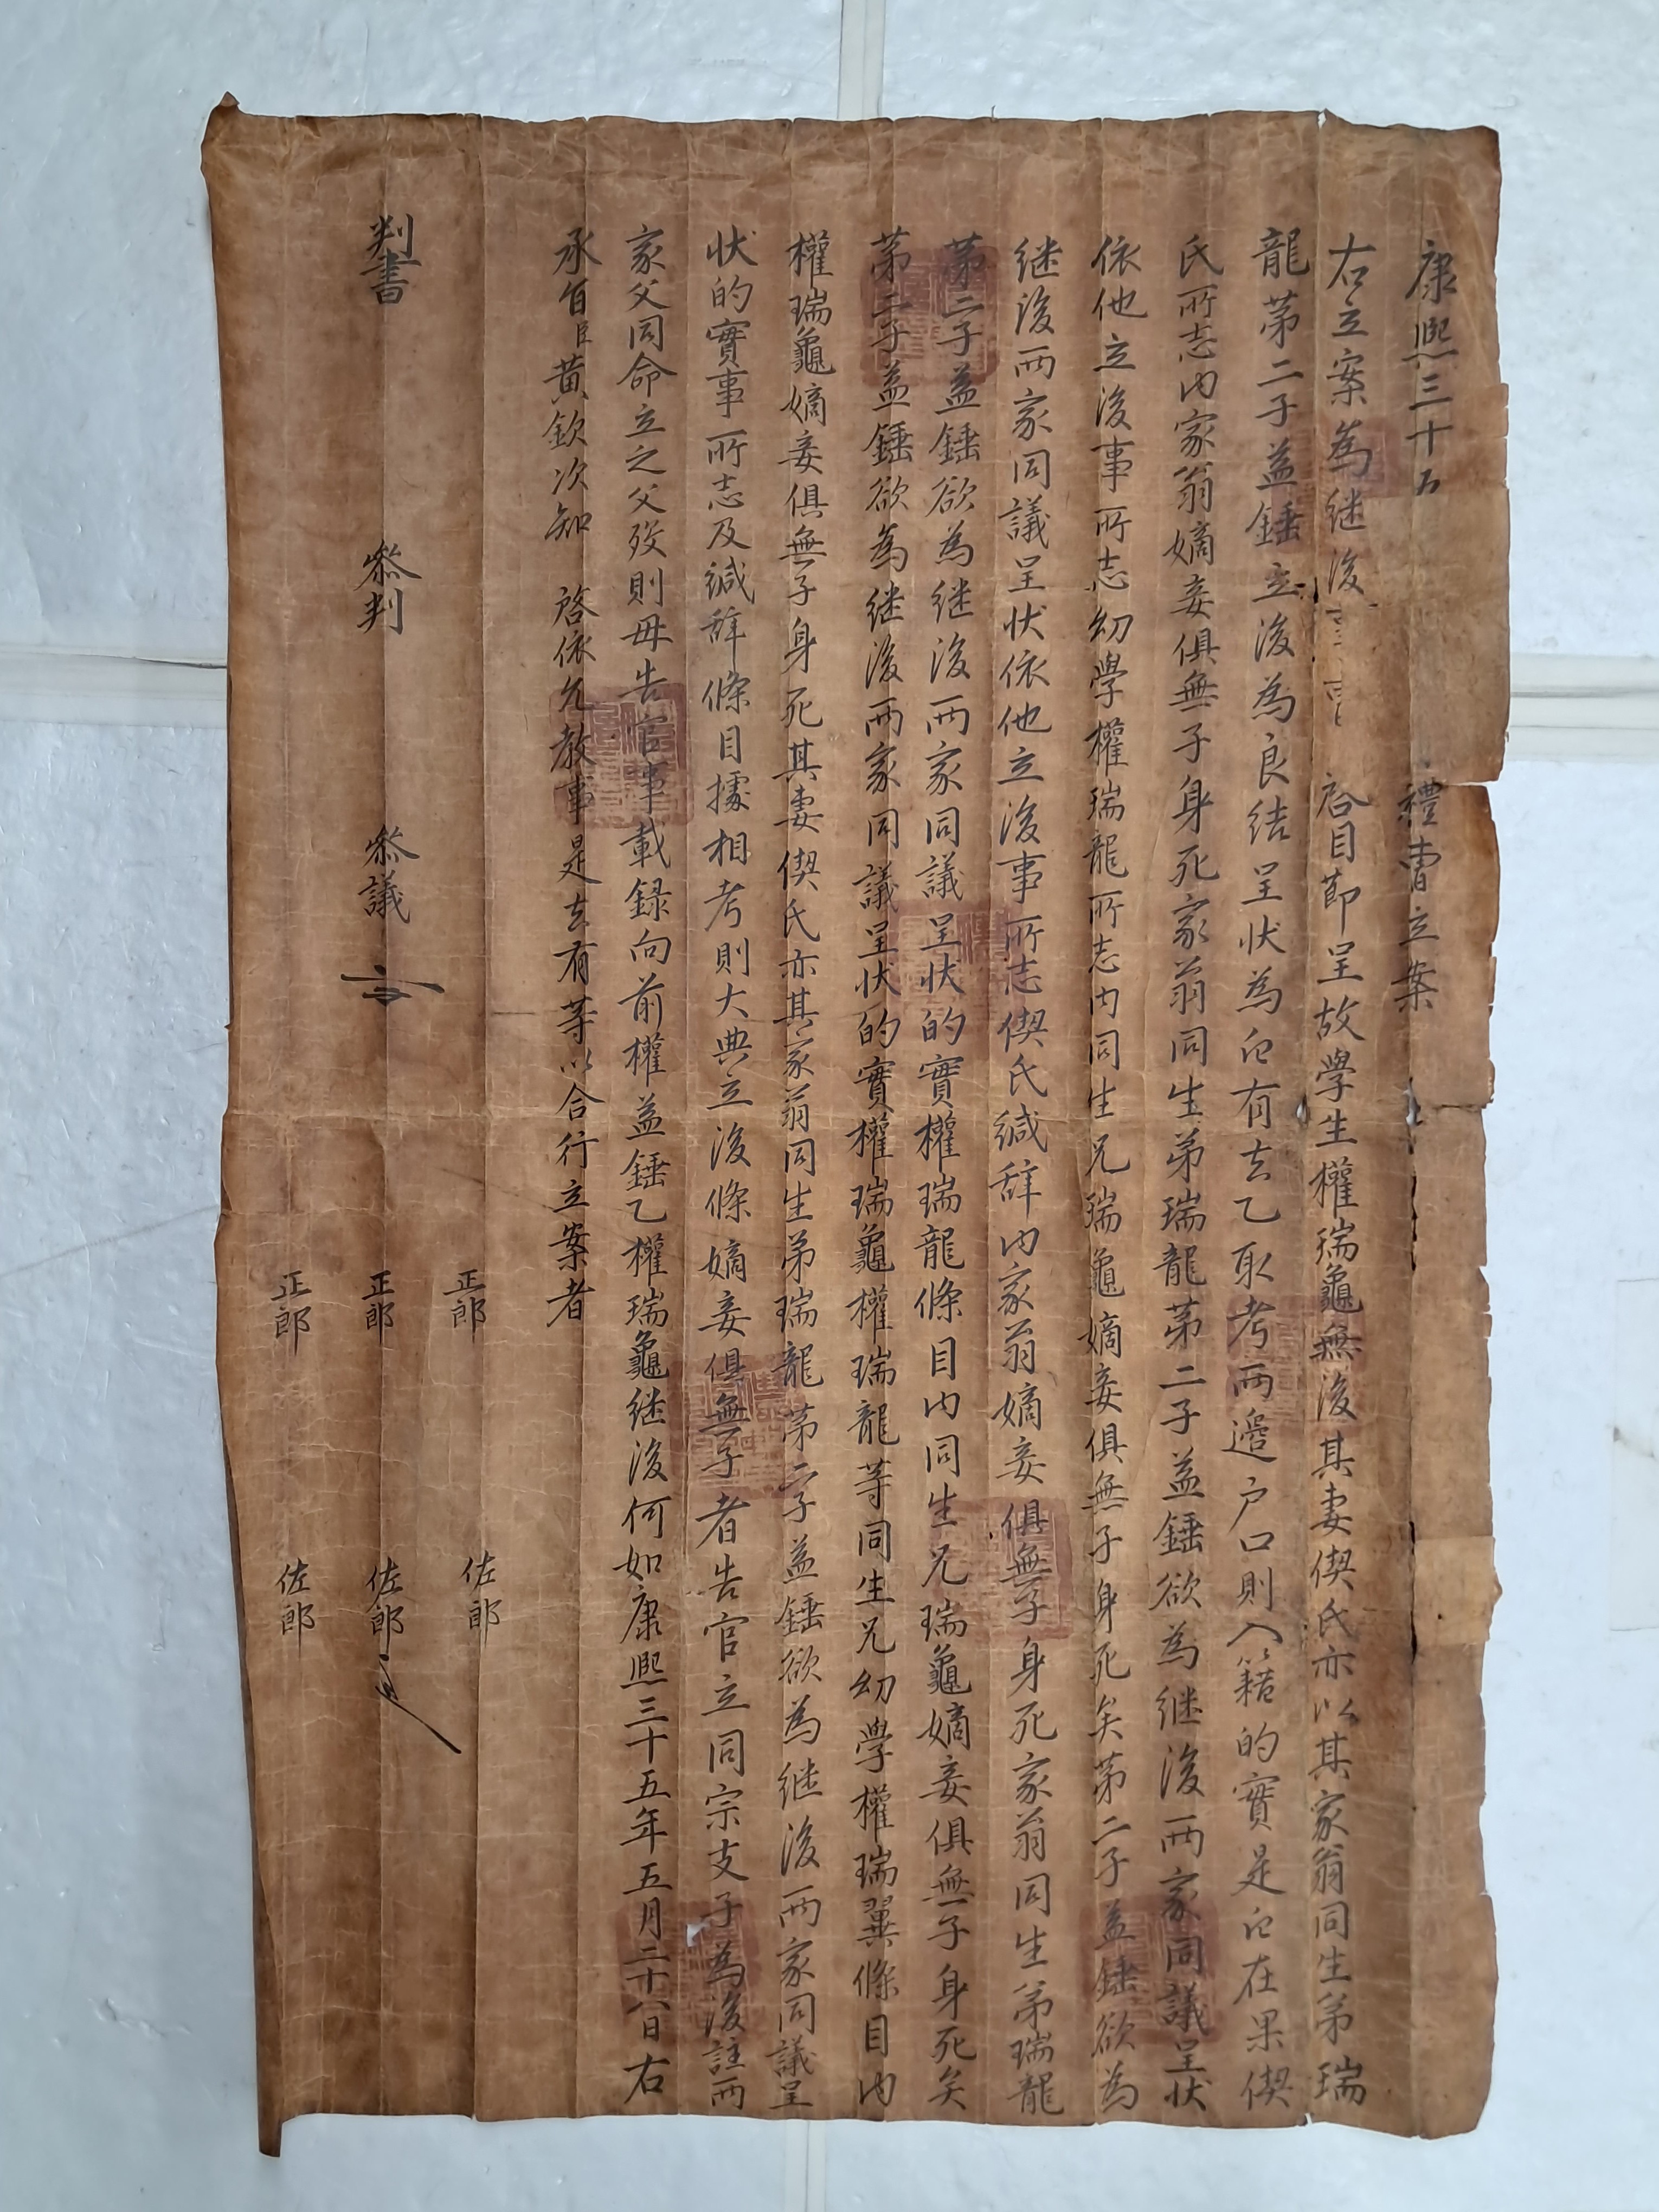 康熙三十五 禮曹立案
右立案爲継後 啓目節呈故學生權瑞龜無後其妻偰氏亦以其家翁同生弟瑞
龍第二子益錘立後爲良結呈狀爲白有去乙取考兩邊户口則入籍的實是白在果偰
氏所志內家翁嫡妾俱無子身死家翁同生弟瑞龍第二子益錘欲爲継後兩家同議呈狀
依他立後事所志幼學權瑞龍所志內同生兄瑞龜嫡妾俱無子身死矣第二子益錘欲爲
継後兩家同議呈狀依他立後事所志偰氏緘辞內家翁嫡妾俱無子身死家翁同生弟瑞龍
第二子益錘欲爲継後兩家同議呈狀的實權瑞龍條目內同生兄瑞龜嫡妾俱無子身死矣
第二子益錘欲爲継後兩家同議呈狀的實權瑞龜權瑞龍等同生兄幼學權瑞翼條目內
權瑞龜嫡妾俱無子身死其妻偰氏亦其家翁同生弟瑞龍第二子益錘欲爲継後兩家同議呈
狀的實事所志及緘辞條目據相考則大典立後條嫡妾俱無子者告官立同宗支子爲後註兩
家父同命立之父歿則母告官事載録向前權益錘乙權瑞龜継後何如康熙三十五年五月二十八日右
承旨臣黃欽次知 啓依允教事是去有等以合行立案者
判書 叅判 叅議
正郎 佐郎
正郎 佐郎
正郎 佐郎